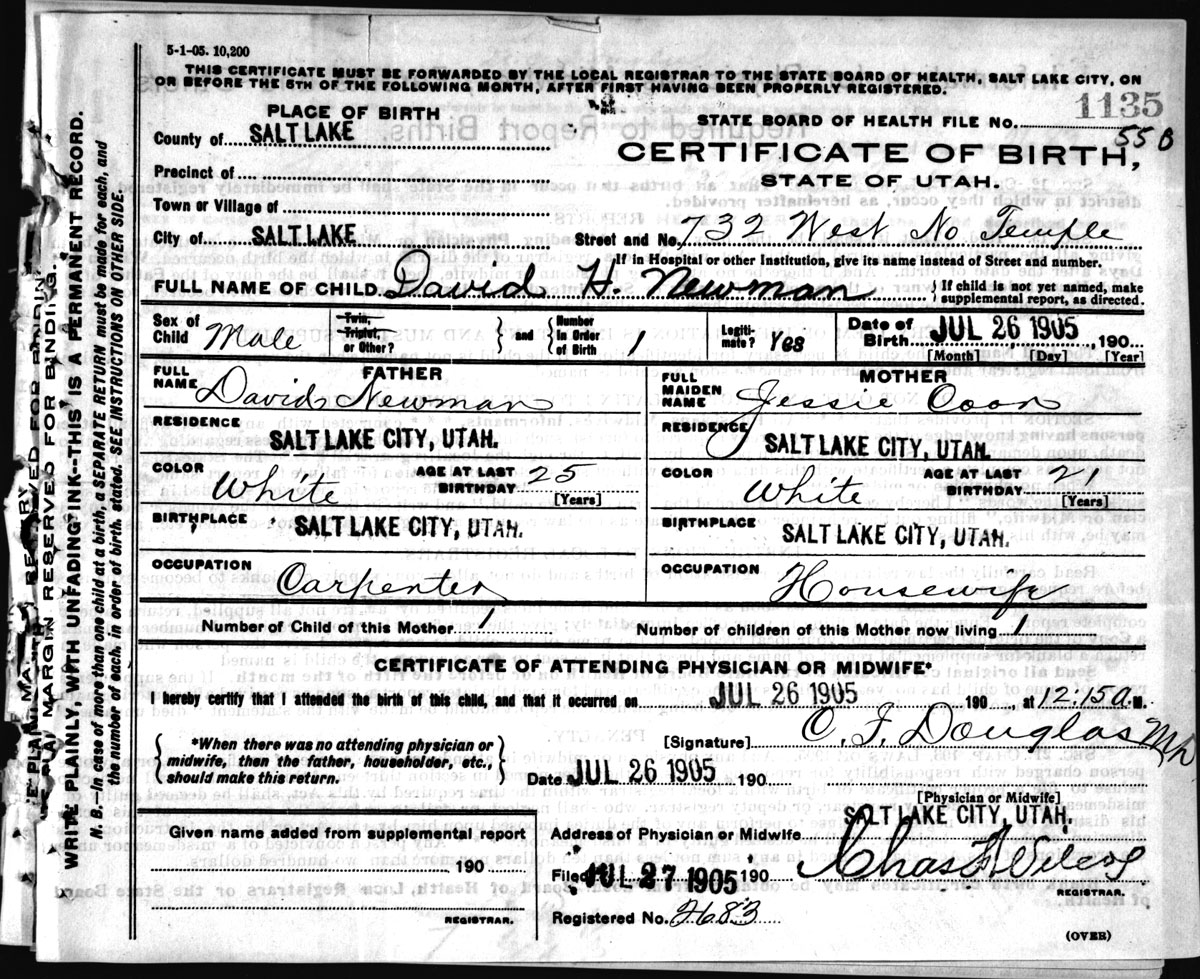 5-1-05. 10,200
THIS CERTIFICATE MUST BE FORWARDED BY THE LOCAL REGISTRAR TO THE STATE BOARD OF HEALTH, SALT LAKE CITY, ON
OR BEFORE THE 5TH OF THE FOLLOWING MONTH, AFTER FIRST HAVING BEEN PROPERLY REGISTERED.
1135
PLACE OF BIRTH
STATE BOARD OF HEALTH FILE NO.
55 B
County of SALT LAKE
CERTIFICATE OF BIRTH,
Precinct of
STATE OF UTAH.
Town or Village of
City of SALT LAKE Street and No. 732 West No Temple
If in Hospital or other Institution, give its name instead of Street and number.
FULL NAME OF CHILD David H. Newman { If child is not yet named, make
supplemental report, as directed.
Sex of Child Male Twin, Triplet, or Other? } and { Number in Order of Birth 1 Legiti-mate? Yes Date of Birth JUL 26 1905, 190
[Month] [Day] [Year]
FATHER MOTHER
FULL NAME David Newman FULL MAIDEN NAME Jessie Coon
RESIDENCE SALT LAKE CITY, UTAH. RESIDENCE SALT LAKE CITY, UTAH.
COLOR White AGE AT LAST BIRTHDAY 25 [Years] COLOR White AGE AT LAST BIRTHDAY 21 [Years]
BIRTHPLACE SALT LAKE CITY, UTAH. BIRTHPLACE SALT LAKE CITY, UTAH.
OCCUPATION Carpenter OCCUPATION Housewife
Number of Child of this Mother 1 Number of children of this Mother now living 1
CERTIFICATE OF ATTENDING PHYSICIAN OR MIDWIFE*
I hereby certify that I attended the birth of this child, and that it occurred on JUL 26 1905 190, at 12:15 a. M.
{ *When there was no attending physician or
midwife, then the father, householder, etc.,
should make this return. }
[Signature] C. F. Douglas
Date JUL 26 1905 190
[Physician or Midwife]
Given name added from supplemental report
190
REGISTRAR.
Address of Physician or Midwife SALT LAKE CITY, UTAH.
Filed JUL 27 1905 190
REGISTRAR.
Registered No. 2683
(OVER)
MARGIN RESERVED FOR BINDING.
WRITE PLAINLY, WITH UNFADING INK--THIS IS A PERMANENT RECORD.
N. B.—In case of more than one child at a birth, a SEPARATE RETURN must be made for each, and
the number of each, in order of birth, stated. SEE INSTRUCTIONS ON OTHER SIDE.